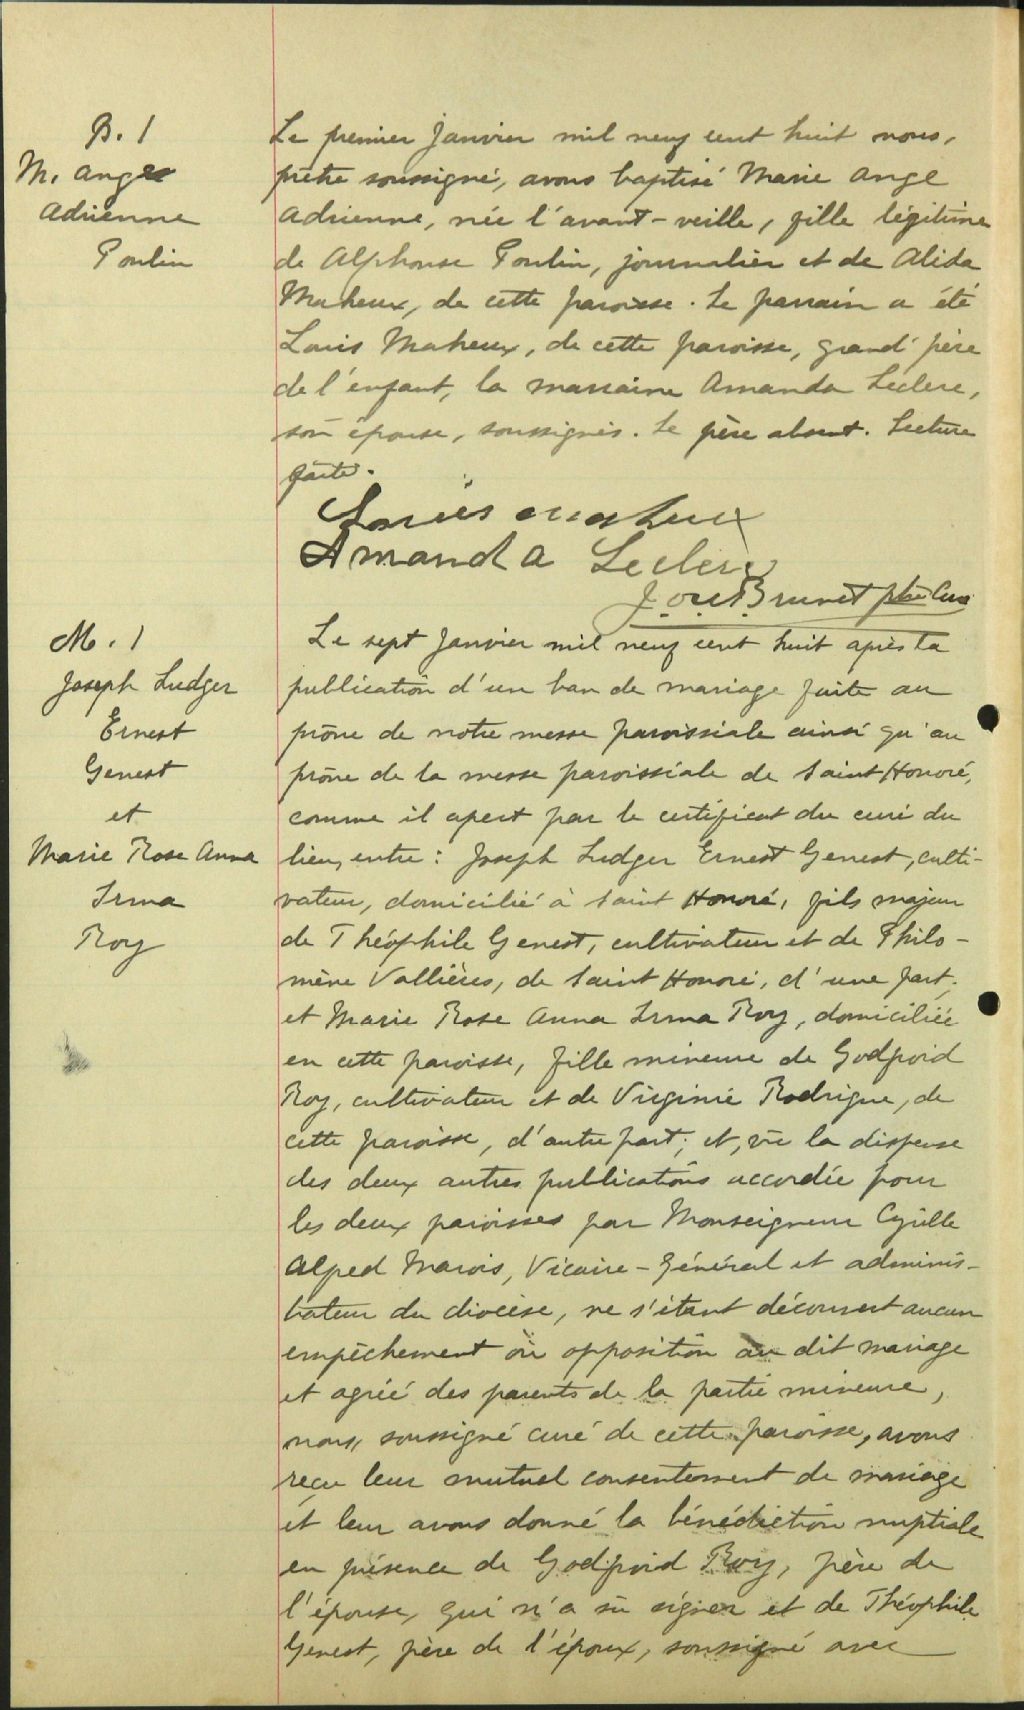 B. 1
M. Ange
Adrienne
Poulin
Le premier janvier mil neuf cent huit nous,
prêtre soussigné, avons baptisé Marie Ange
Adrienne, née l'avant-veille, fille légitime
de Alphonse Poulin, journalier et de Alida
Maheux, de cette paroisse. Le parrain a été
Louis Maheux, de cette paroisse, grand'père
de l'enfant, la marraine Amanda Leclerc,
son épouse, soussignés. Le père absent. Lecture
faite.
Louis Maheux
Amanda Leclerc
J. Brunet ptre Curé
M. 1
Joseph Ludger
Ernest
Genest
et
Marie Rose Anna
Irma
Roy
Le sept janvier mil neuf cent huit après la
publication d'un ban de mariage faite au
prône de notre messe paroissiale ainsi qu'au
prône de la messe paroissiale de Saint Honoré,
comme il apert par le certificat du curé du
lieu, entre: Joseph Ludger Ernest Genest, culti-
vateur, domicilié à Saint Honoré, fils majeur
de Théophile Genest, cultivateur et de Philo-
mène Vallières, de Saint Honoré, d'une part;
et Marie Rose Anna Irma Roy, domiciliée
en cette paroisse, fille mineure de Godfroid
Roy, cultivateur et de Virginie Rodrigue, de
cette paroisse, d'autre part; et, vu la dispense
des deux autres publications accordée pour
les deux paroisses par Monseigneur Cyrille
Alfred Marois, Vicaire-Général et adminis-
trateur du diocèse, ne s'étant découvert aucun
empêchement ou opposition au dit mariage
et agréé des parents de la partie mineure,
nous, soussigné curé de cette paroisse, avons
reçu leur mutuel consentement de mariage
et leur avons donné la bénédiction nuptiale
en présence de Godfroid Roy, père de
l'épouse, qui n'a su signer et de Théophile
Genest, père de l'époux, soussigné avec